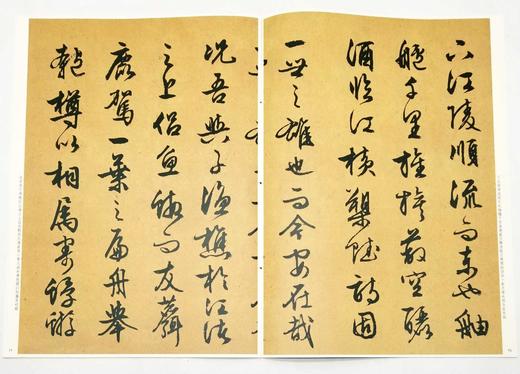 下江陵順流而東也舳
艫千里旌旗蔽空釃
酒臨江橫槊賦詩固
一世之雄也而今安在哉
況吾與子漁樵於江渚
之上侶魚蝦而友麋
鹿駕一葉之扁舟舉
匏樽以相属寄蜉蝣